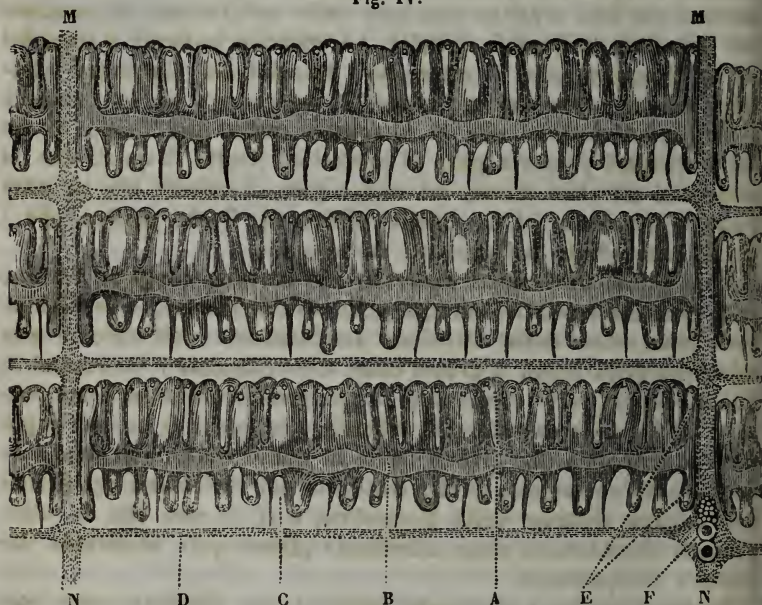 Fig. IV.
M M
N D C B A E F N